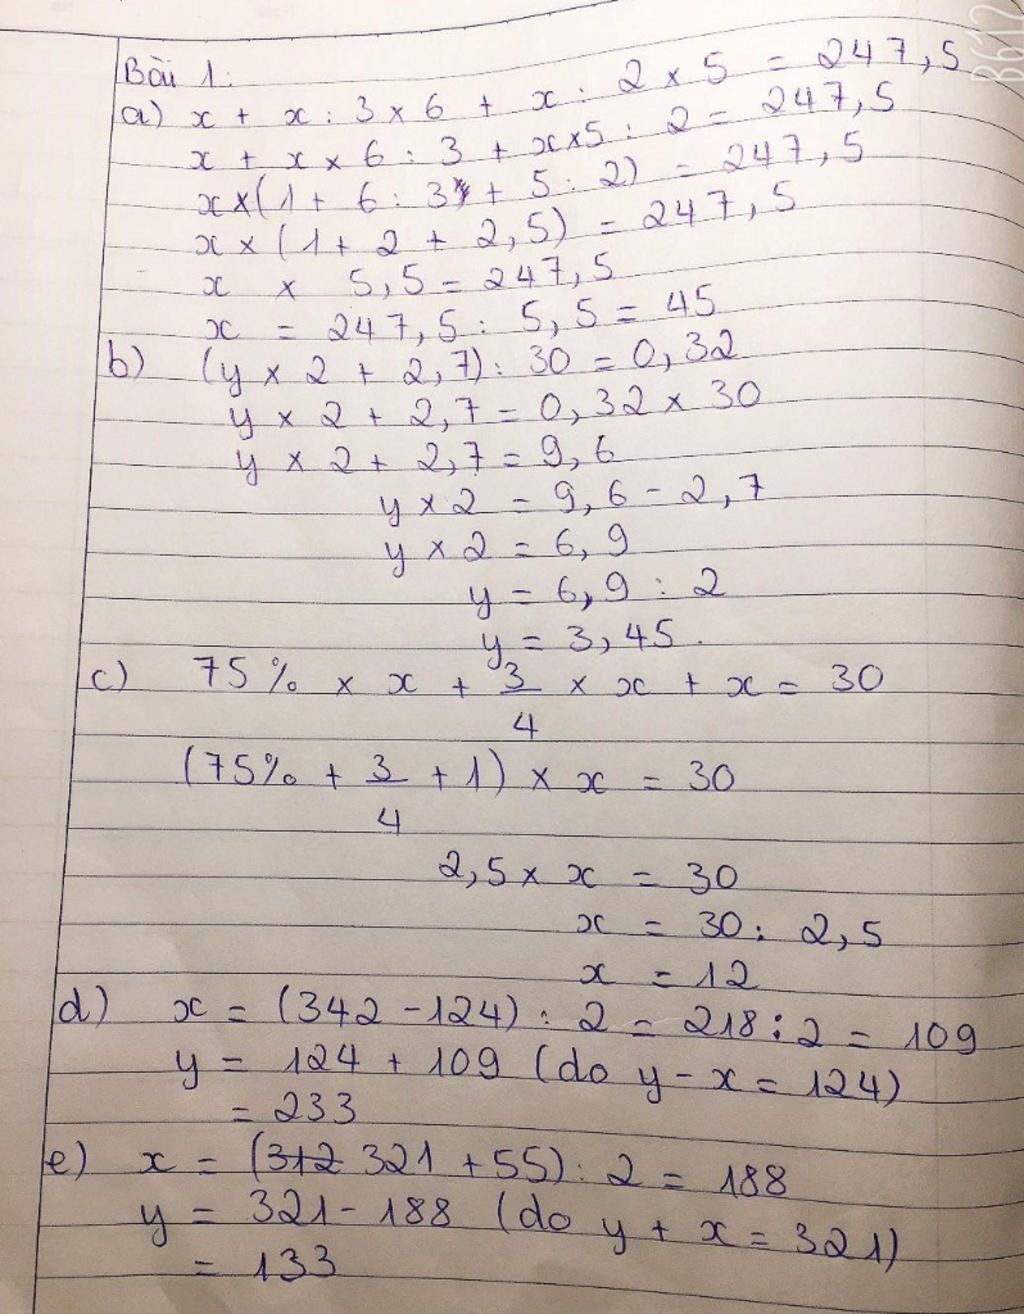 Bài 1:
a) x + x : 3 × 6 + x : 2 × 5 = 247,5
x + x × 6 : 3 + x × 5 : 2 = 247,5
x × (1 + 6 : 3 + 5 : 2) = 247,5
x × (1 + 2 + 2,5) = 247,5
x × 5,5 = 247,5
x = 247,5 : 5,5 = 45
b) (y × 2 + 2,7) : 30 = 0,32
y × 2 + 2,7 = 0,32 × 30
y × 2 + 2,7 = 9,6
y × 2 = 9,6 - 2,7
y × 2 = 6,9
y = 6,9 : 2
y = 3,45.
c) 75% × x + 3/4 × x + x = 30
(75% + 3/4 + 1) × x = 30
2,5 × x = 30
x = 30 : 2,5
x = 12
d) x = (342 - 124) : 2 = 218 : 2 = 109
y = 124 + 109 (do y - x = 124)
= 233
e) x = (312 321 + 55) : 2 = 188
y = 321 - 188 (do y + x = 321)
= 133
3612